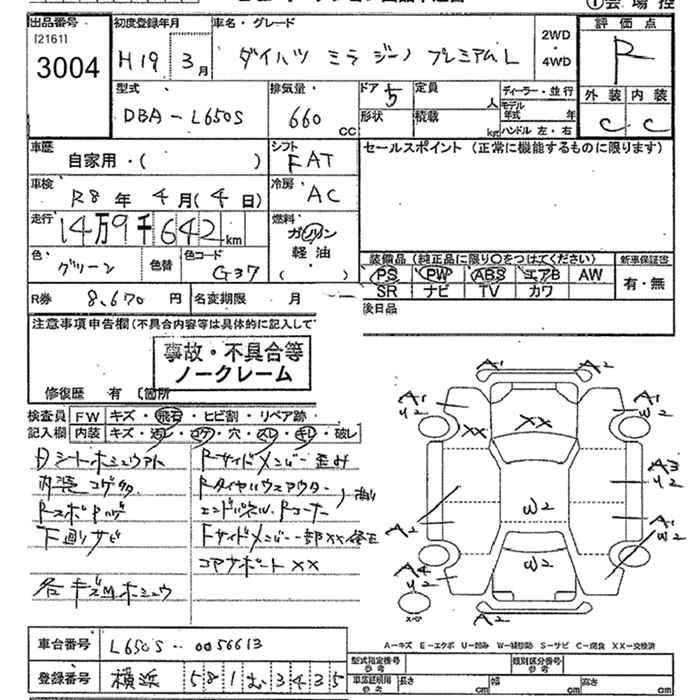 出品番号
[2161]
3004
初度登録年月
H19 3月
車名・グレード
ダイハツ ミラ ジーノ プレミアムL
2WD
・
4WD
評価点
R
外装 内装
C C
型式
DBA-L650S
排気量
660 CC
ドア 5
形状
定員 人
積載 kg
ディーラー・並行
モデル年式 年
ハンドル 左・右
車歴
自家用・( )
シフト
FAT
セールスポイント (正常に機能するものに限ります)
車検
R8年 4月(4日)
冷房
AC
走行
14万9千642km
燃料
ガソリン
軽油
( )
色
グリーン
色替
色コード
G37
装備品(純正品に限り○をつけてください)
新車保証書
PS PW ABS エアB AW
SR ナビ TV カワ
有・無
R券 8,670円
名変期限 月
後日品
注意事項申告欄(不具合内容等は具体的に記入して
事故・不具合等
ノークレーム
修復歴 有 〔箇所
検査員
記入欄
FW キズ・飛石・ヒビ割・リペア跡
内装 キズ・汚レ・コゲ・穴・スレ・キレ・破レ
Rサイドメンバー歪み
下廻りサビ
コアサポートXX
A1 A2
A1
U2
XX
XX
A1
W2
A2
W2
A3
U2
A1
W2
A4
U2
W2
A2
スペア
A-キズ E-エクボ U-凹み W-補修跡 S-サビ C-腐食 XX-交換済
車台番号 L650S-0056613
登録番号 横浜 581 3435
型式指定番号
参考
類別区分番号
参考
車庫証明用
参考
長さ cm 幅 cm 高さ cm